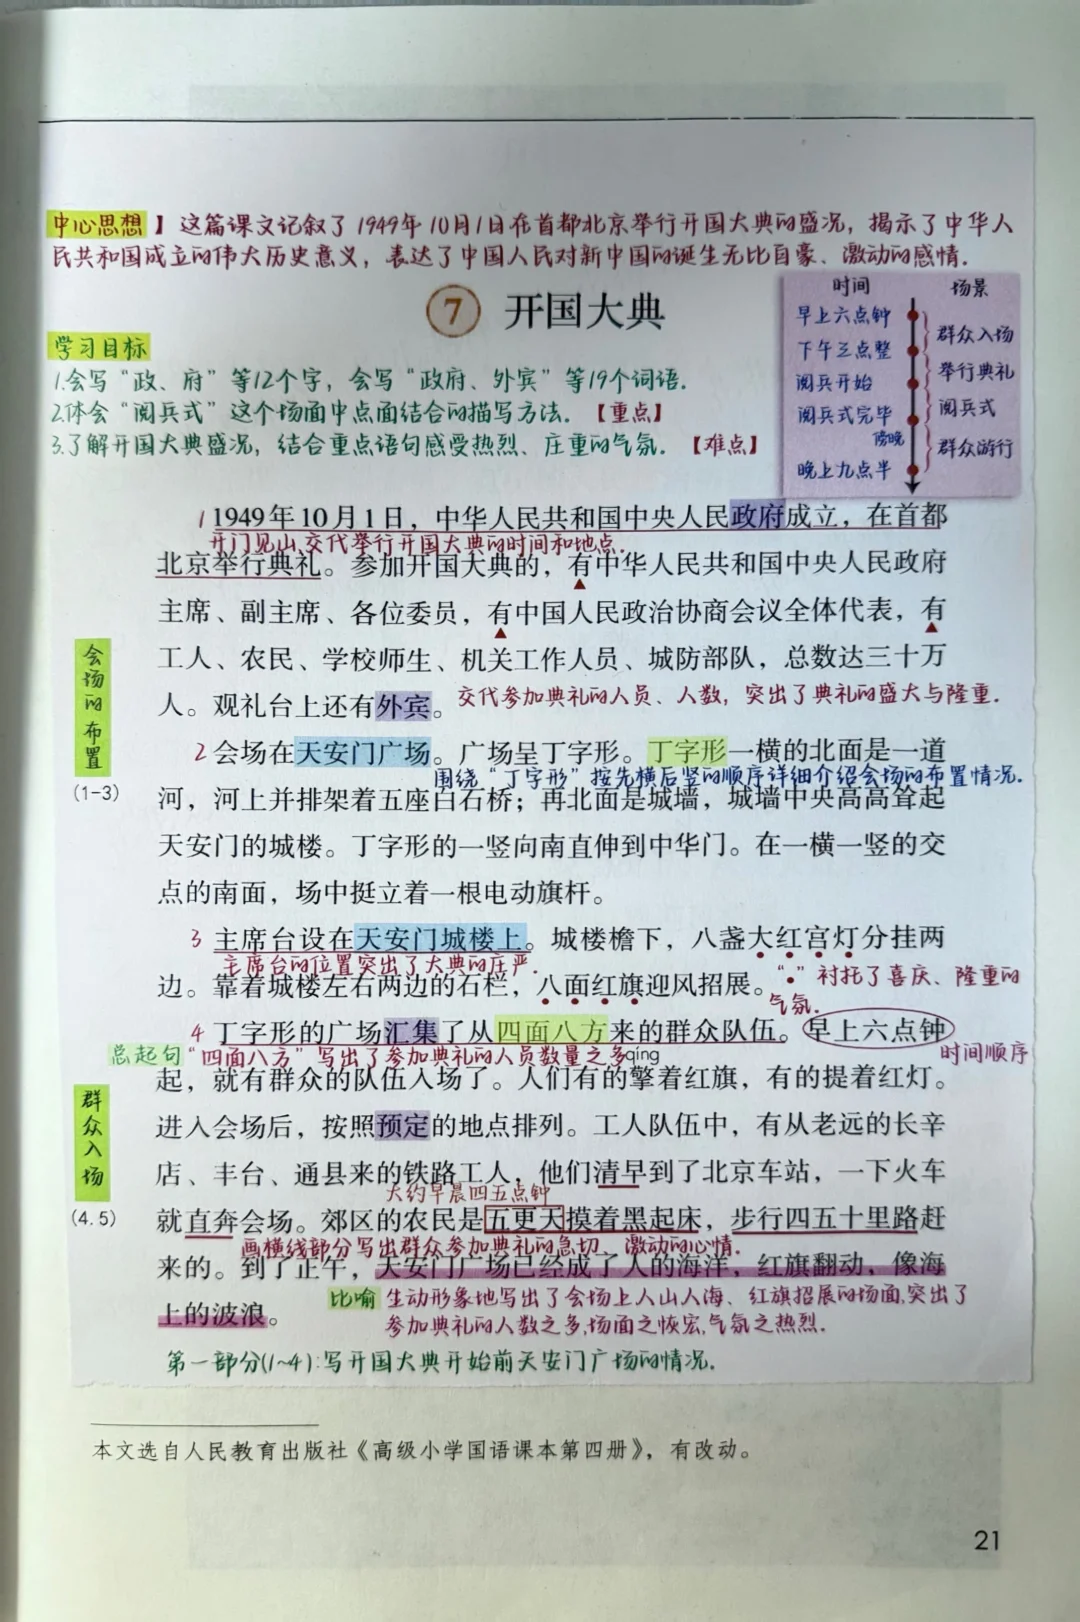 中心思想】这篇课文记叙了1949年10月1日在首都北京举行开国大典的盛况，揭示了中华人
民共和国成立的伟大历史意义，表达了中国人民对新中国的诞生无比自豪、激动的感情.
7 开国大典
时间 场景
早上六点钟
群众入场
下午三点整
举行典礼
阅兵开始
阅兵式
阅兵式完毕
傍晚
群众游行
晚上九点半
学习目标
1.会写“政、府”等12个字，会写“政府、外宾”等19个词语.
2.体会“阅兵式”这个场面中点面结合的描写方法.【重点】
3.了解开国大典盛况，结合重点语句感受热烈、庄重的气氛.【难点】
1 1949年10月1日，中华人民共和国中央人民政府成立，在首都
开门见山,交代举行开国大典的时间和地点.
北京举行典礼。参加开国大典的，有中华人民共和国中央人民政府
主席、副主席、各位委员，有中国人民政治协商会议全体代表，有
工人、农民、学校师生、机关工作人员、城防部队，总数达三十万
人。观礼台上还有外宾。 交代参加典礼的人员、人数，突出了典礼的盛大与隆重.
会场的布置
(1-3)
2 会场在天安门广场。广场呈丁字形。丁字形一横的北面是一道
围绕“丁字形”按先横后竖的顺序详细介绍会场的布置情况.
河，河上并排架着五座白石桥；再北面是城墙，城墙中央高高耸起
天安门的城楼。丁字形的一竖向南直伸到中华门。在一横一竖的交
点的南面，场中挺立着一根电动旗杆。
3 主席台设在天安门城楼上。城楼檐下，八盏大红宫灯分挂两
主席台的位置突出了大典的庄严.
边。靠着城楼左右两边的石栏，八面红旗迎风招展。 “•”衬托了喜庆、隆重的
气氛.
4 丁字形的广场汇集了从四面八方来的群众队伍。早上六点钟
总起句 “四面八方”写出了参加典礼的人员数量之多 qíng 时间顺序
起，就有群众的队伍入场了。人们有的擎着红旗，有的提着红灯。
群众入场
(4.5)
进入会场后，按照预定的地点排列。工人队伍中，有从老远的长辛
店、丰台、通县来的铁路工人，他们清早到了北京车站，一下火车
大约早晨四五点钟
就直奔会场。郊区的农民是五更天摸着黑起床，步行四五十里路赶
画横线部分写出群众参加典礼的急切、激动的心情.
来的。到了正午，天安门广场已经成了人的海洋，红旗翻动，像海
上的波浪。
比喻 生动形象地写出了会场上人山人海、红旗招展的场面,突出了
参加典礼的人数之多,场面之恢宏,气氛之热烈.
第一部分(1~4):写开国大典开始前天安门广场的情况.
本文选自人民教育出版社《高级小学国语课本第四册》，有改动。
21